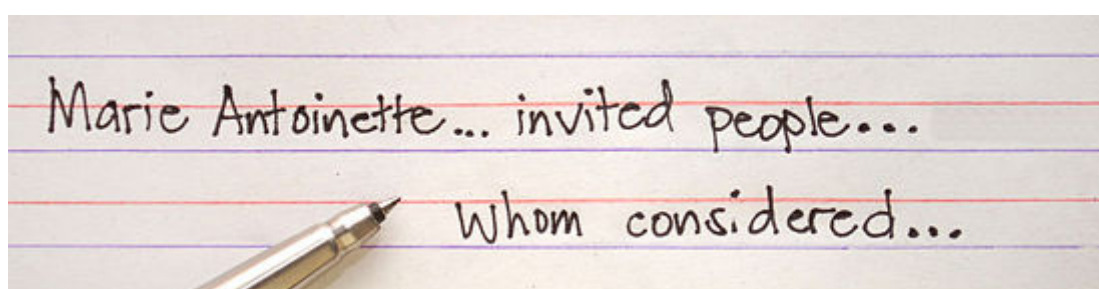 Marie Antoinette... invited people...
Whom considered...